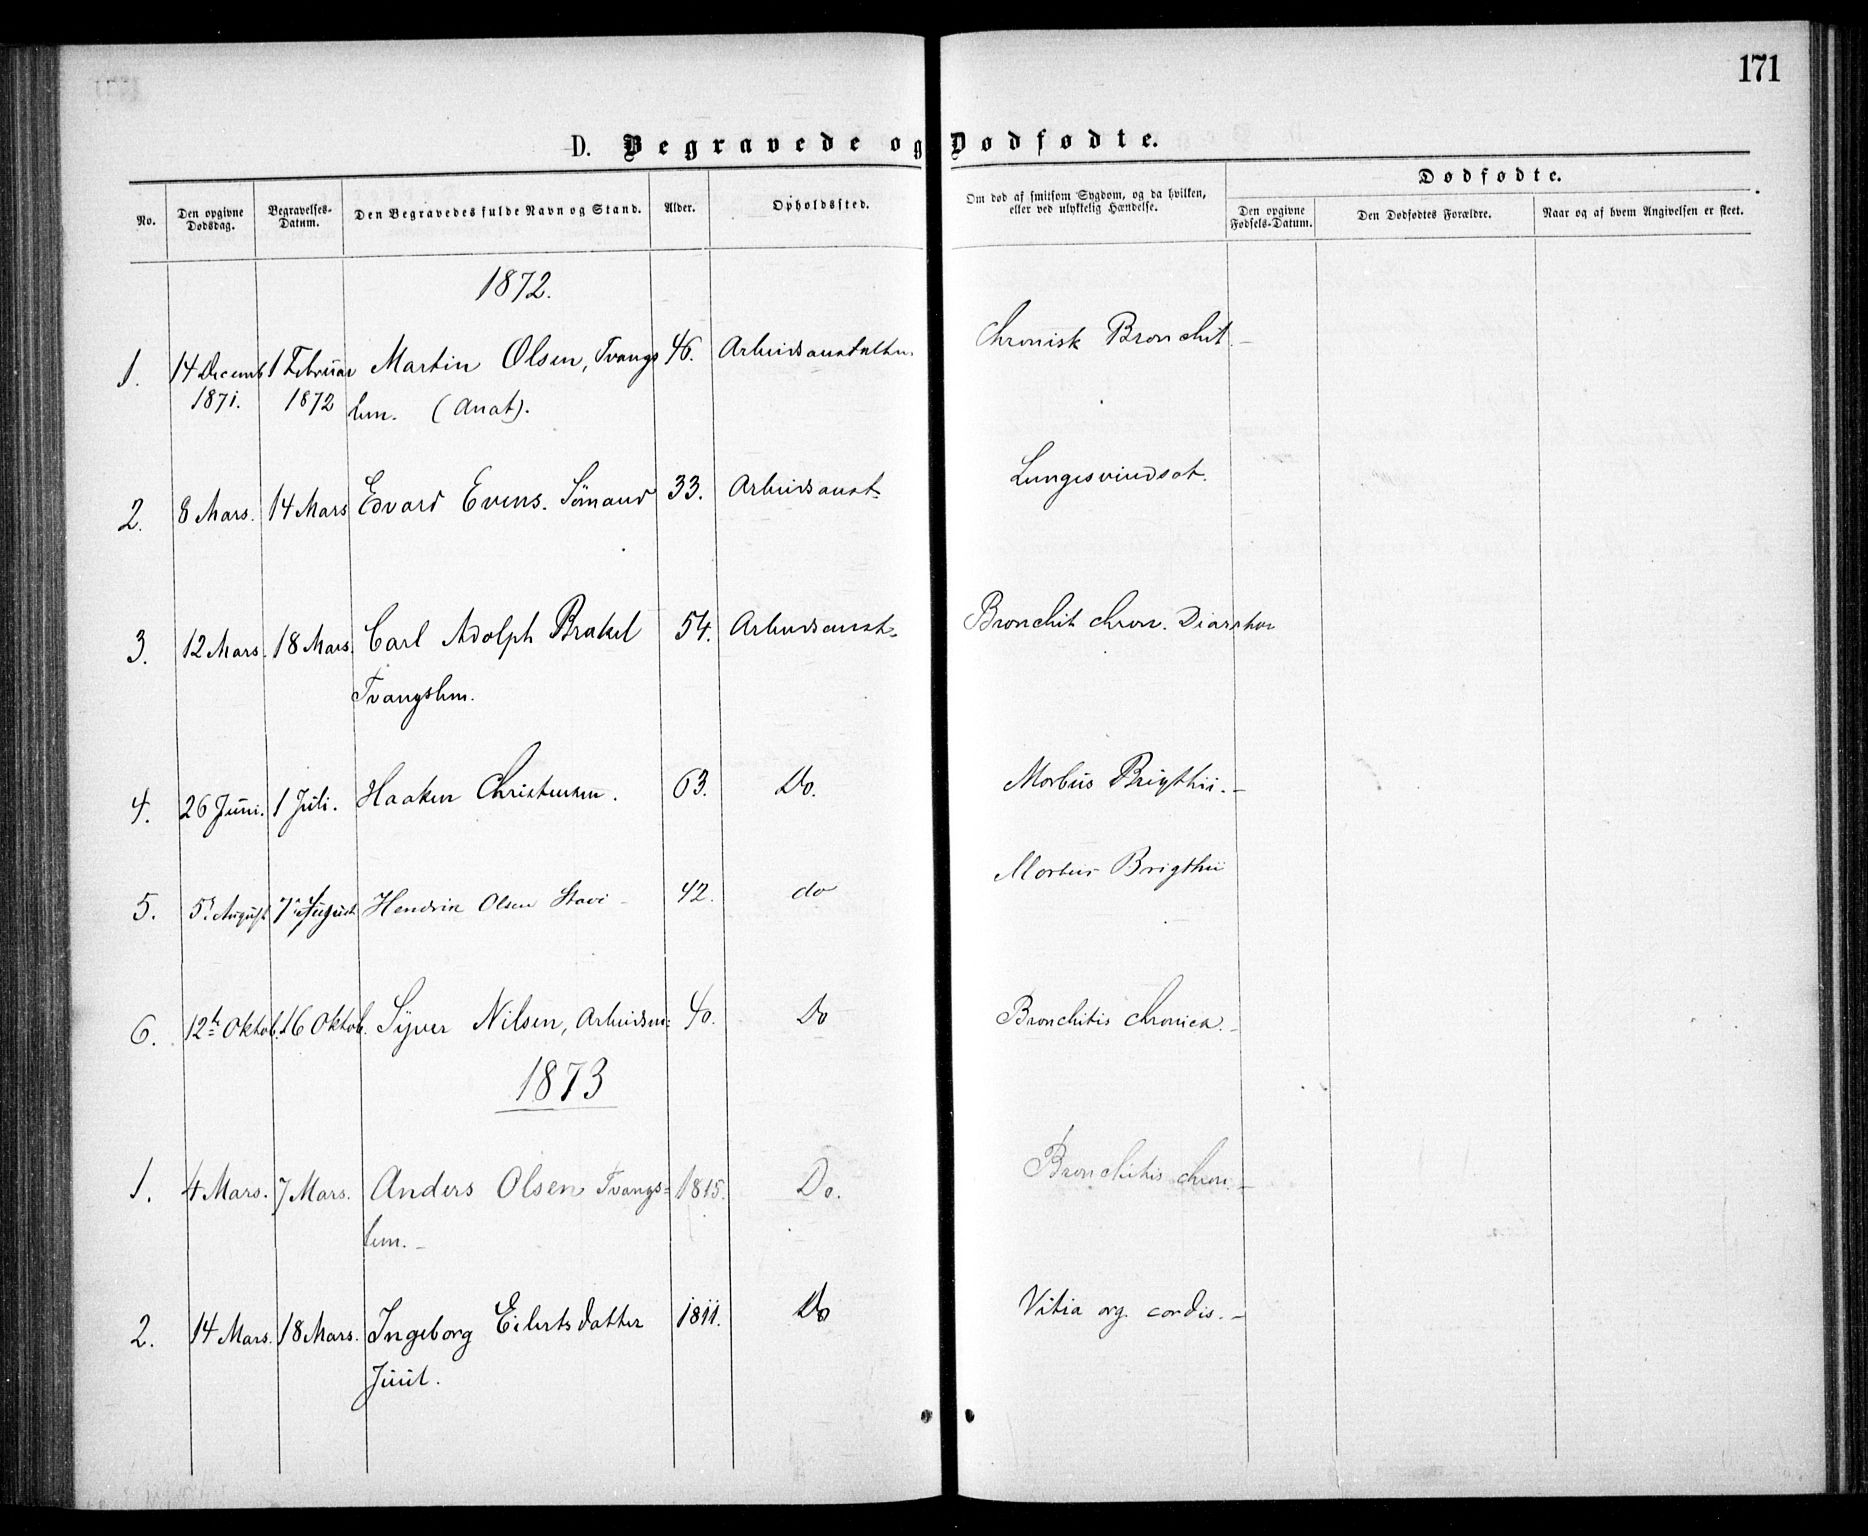 171
D. Begravede og Dødfødte.
No. Den opgivne Dødsdag. Begravelses-Datum. Den Begravedes fulde Navn og Stand. Alder. Opholdssted. Om død af smitsom Sygdom, og da hvilken, eller ved ulykkelig Hændelse. Dødfødte.
Den opgivne Fødsels-Datum. Den Dødfødtes Forældre. Naar og af hvem Angivelsen er skeet.
1872.
1. 14 Decemb 1 Februar Martin Olsen, Tvangs 46. Arbeidsanstalten. Chronisk Bronchit.
1871. 1872 lem. (Anat).
2. 8 Mars. 14 Mars Edvard Evens. Sömand 33. Arbeidsanst. Lungesvindsot.
3. 12 Mars. 18 Mars. Carl Adolph Brakel 54. Arbeidsanst. Bronchit chron. Diarrhoe
Tvangslem.
4. 26 Juni. 1 Juli. Haaken Christensen. 63. Do. Morbus Brigthii.
5. 5t August 7 August Hendrik Olsen 42. do Morbus Brigthii
6. 12te Oktob. 16 Oktob. Syver Nilsen, Arbeidsm: 40. Do Bronchitis chronica.
1873
1. 4 Mars. 7 Mars. Anders Olsen Tvangs= 1815. Do. Bronchitis chron.
lem.
2. 14 Mars. 18 Mars. Ingeborg Eilertsdatter 1811. Do Vitia org. cordis.
Juul.